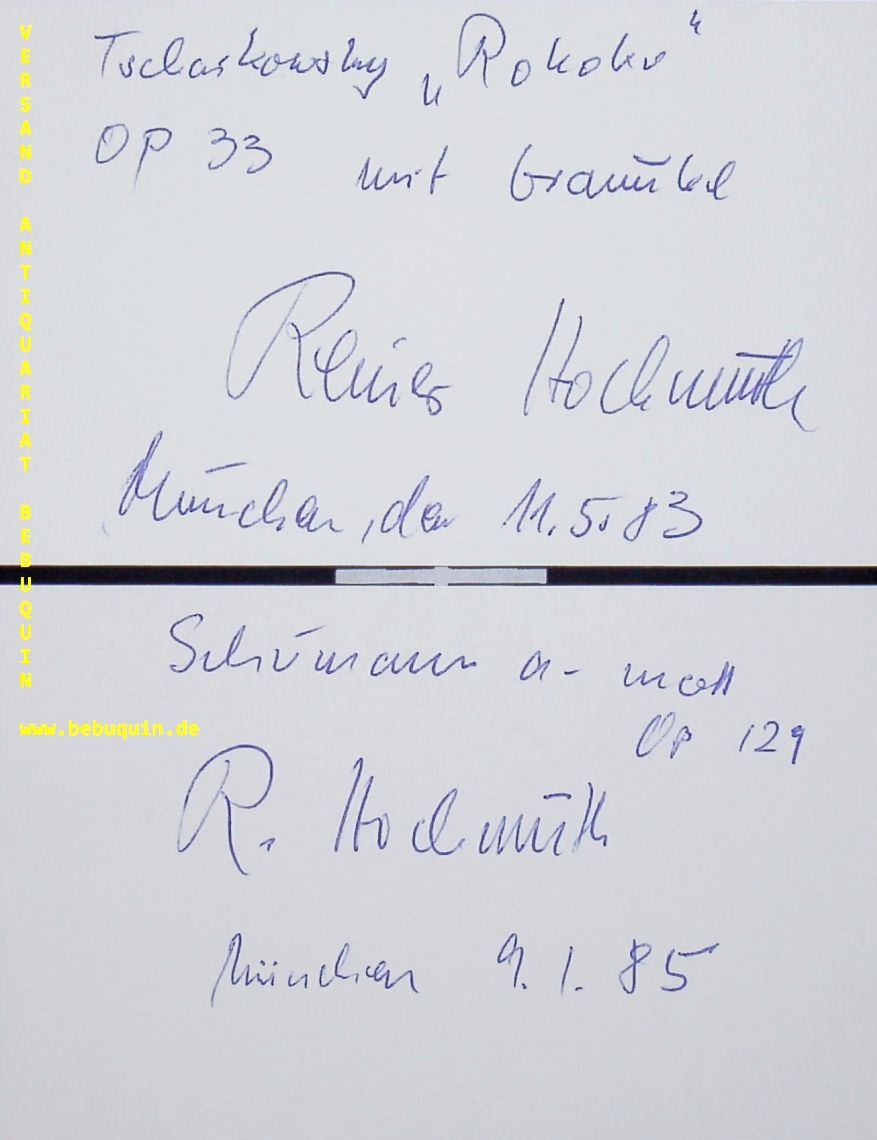 Tschaikowsky „Rokoko“
OP 33 mit Graunke
Reiner Hochmuth
München, den 11.5.83
Schumann a-moll
Op 129
R. Hochmuth
München 9.1.85
VERSAND ANTIQUARIAT BEBUQUIN
www.bebuquin.de